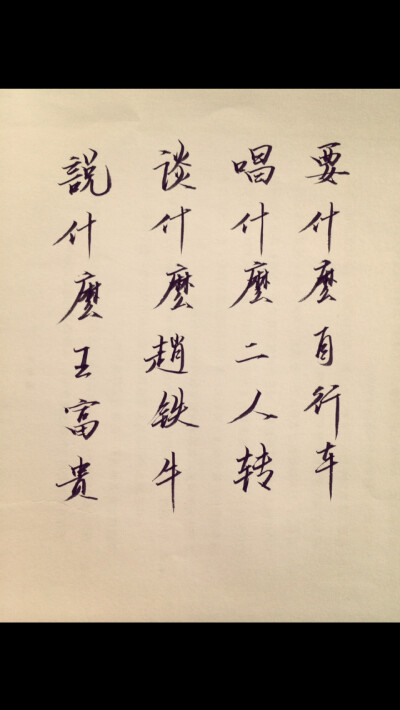 要什麼自行车
唱什麼二人转
谈什麼趙铁牛
說什麼王富貴